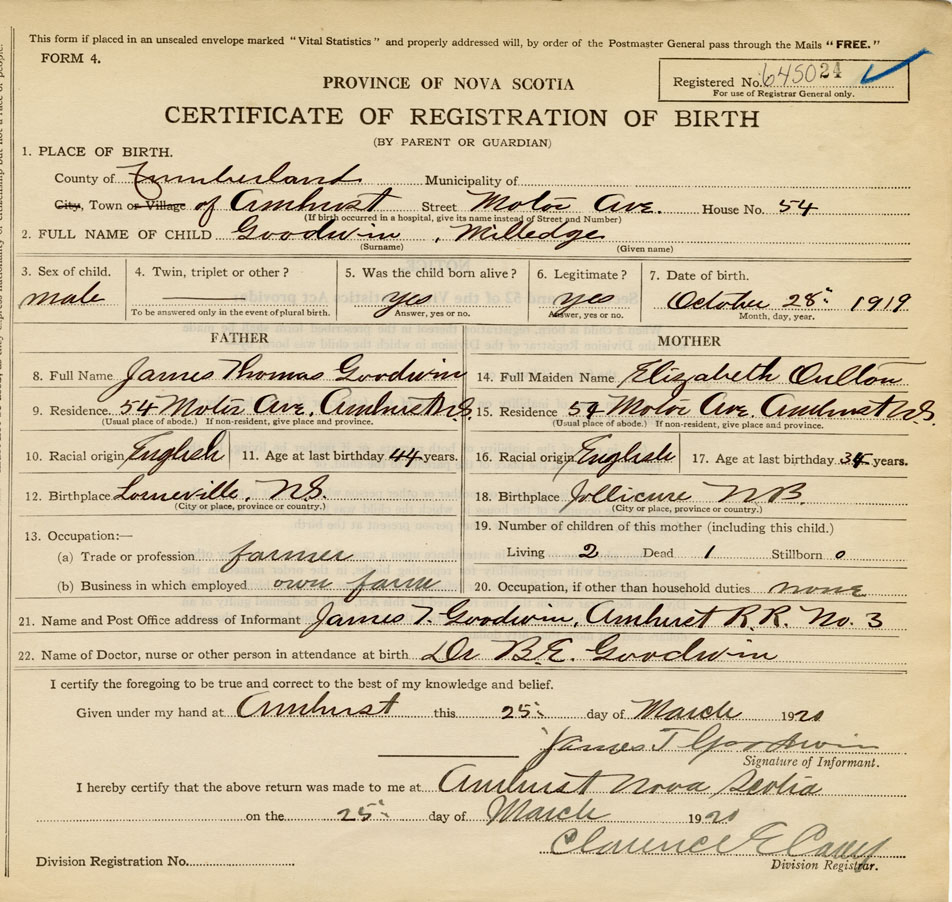 This form if placed in an unsealed envelope marked "Vital Statistics" and properly addressed will, by order of the Postmaster General pass through the Mails "FREE."
FORM 4.
Registered No. 645024
For use of Registrar General only.
PROVINCE OF NOVA SCOTIA
CERTIFICATE OF REGISTRATION OF BIRTH
(BY PARENT OR GUARDIAN)
1. PLACE OF BIRTH.
County of Cumberland Municipality of
City, Town or Village of Amherst Street Motor Ave. House No. 54
(If birth occurred in a hospital, give its name instead of Street and Number)
2. FULL NAME OF CHILD Goodwin, Milledge
(Surname) (Given name)
3. Sex of child. 4. Twin, triplet or other? 5. Was the child born alive? 6. Legitimate? 7. Date of birth.
male yes yes October 28: 1919
To be answered only in the event of plural birth. Answer, yes or no. Answer, yes or no. Month, day, year.
FATHER MOTHER
8. Full Name James Thomas Goodwin 14. Full Maiden Name Elizabeth Oulton
9. Residence 54 Motor Ave. Amherst N.S. 15. Residence 54 Motor Ave. Amherst N.S.
(Usual place of abode.) If non-resident, give place and province. (Usual place of abode.) If non-resident, give place and province.
10. Racial origin English 11. Age at last birthday 44 years. 16. Racial origin English 17. Age at last birthday years.
12. Birthplace Lorneville, N.S. 18. Birthplace Jollicure N.B.
(City or place, province or country.) (City or place, province or country.)
13. Occupation:— 19. Number of children of this mother (including this child.)
(a) Trade or profession farmer Living 2 Dead 1 Stillborn 0
(b) Business in which employed own farm 20. Occupation, if other than household duties none
21. Name and Post Office address of Informant James T. Goodwin, Amherst R.R. No. 3
22. Name of Doctor, nurse or other person in attendance at birth Dr B.E. Goodwin
I certify the foregoing to be true and correct to the best of my knowledge and belief.
Given under my hand at Amherst this 25: day of March 1920
James T Goodwin
Signature of Informant.
I hereby certify that the above return was made to me at Amherst Nova Scotia
on the 25: day of March 1920
Clarence E
Division Registration No. Division Registrar.